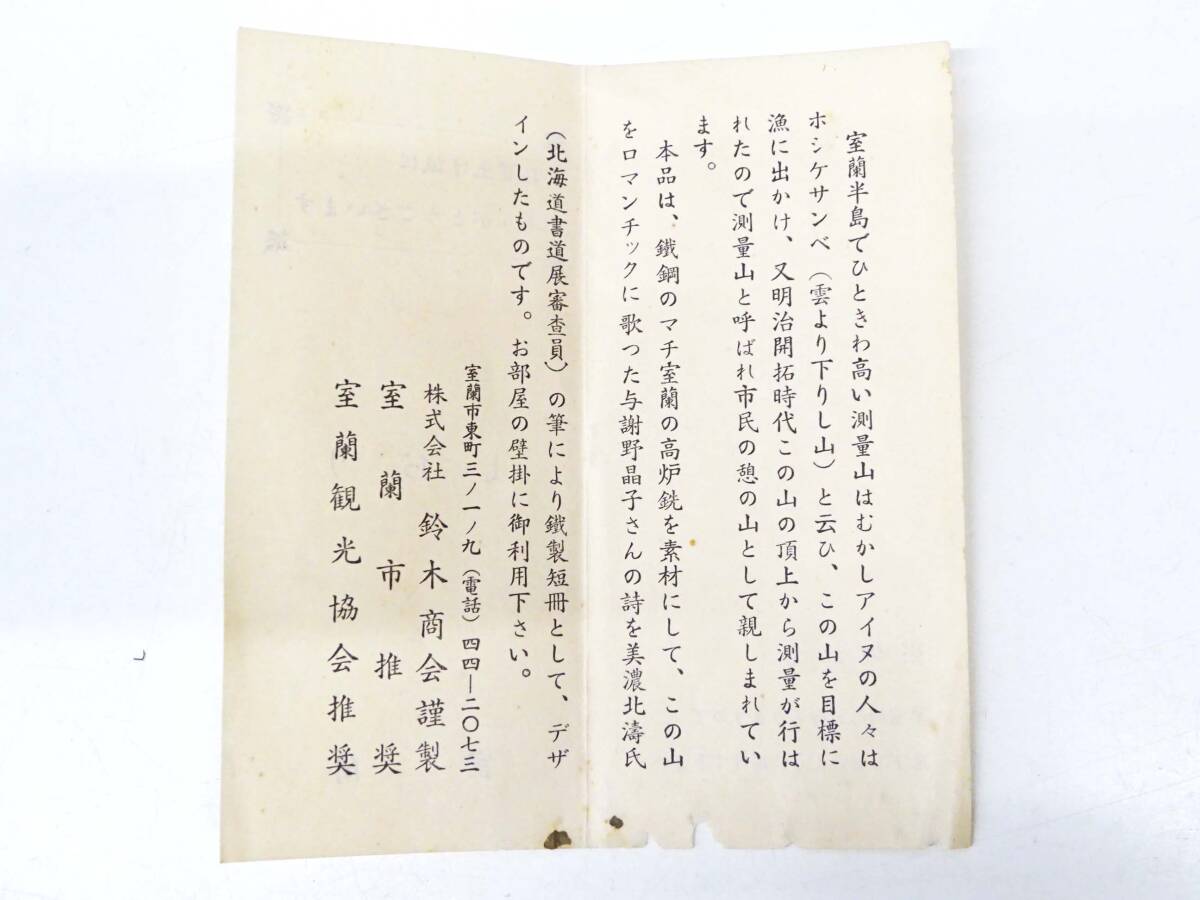 室蘭半島でひときわ高い測量山はむかしアイヌの人々は
ホシケサンベ（雲より下りし山）と云ひ、この山を目標に
漁に出かけ、又明治開拓時代この山の頂上から測量が行は
れたので測量山と呼ばれ市民の憩の山として親しまれてい
ます。
本品は、鐵鋼のマチ室蘭の高炉銑を素材にして、この山
をロマンチックに歌つた与謝野晶子さんの詩を美濃北濤氏
（北海道書道展審査員）の筆により鐵製短冊として、デザ
インしたものです。お部屋の壁掛に御利用下さい。
室蘭市東町三ノ一ノ九（電話）四四―二〇七三
株式会社 鈴木商会謹製
室蘭市推奨
室蘭観光協会推奨